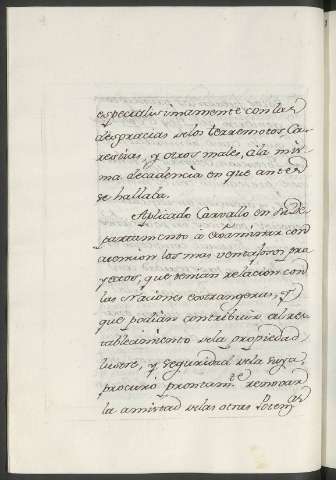 especialisimamente con las
desgracias de los terremotos, Ca-
restias, y otros males, á la mis-
ma decadencia en que antes
se hallaba.
Aplicado Carvallo en su De-
partamento á examinar con
atencion los mas ventajosos pro-
yectos, que tenian relacion con
las Naciones extrangeras, y
que podian contribuir al res-
tablecimiento de la propiedad,
lustre, y seguridad de la suya,
procuró prontam.te renovar
la amistad de las otras Potenz.as